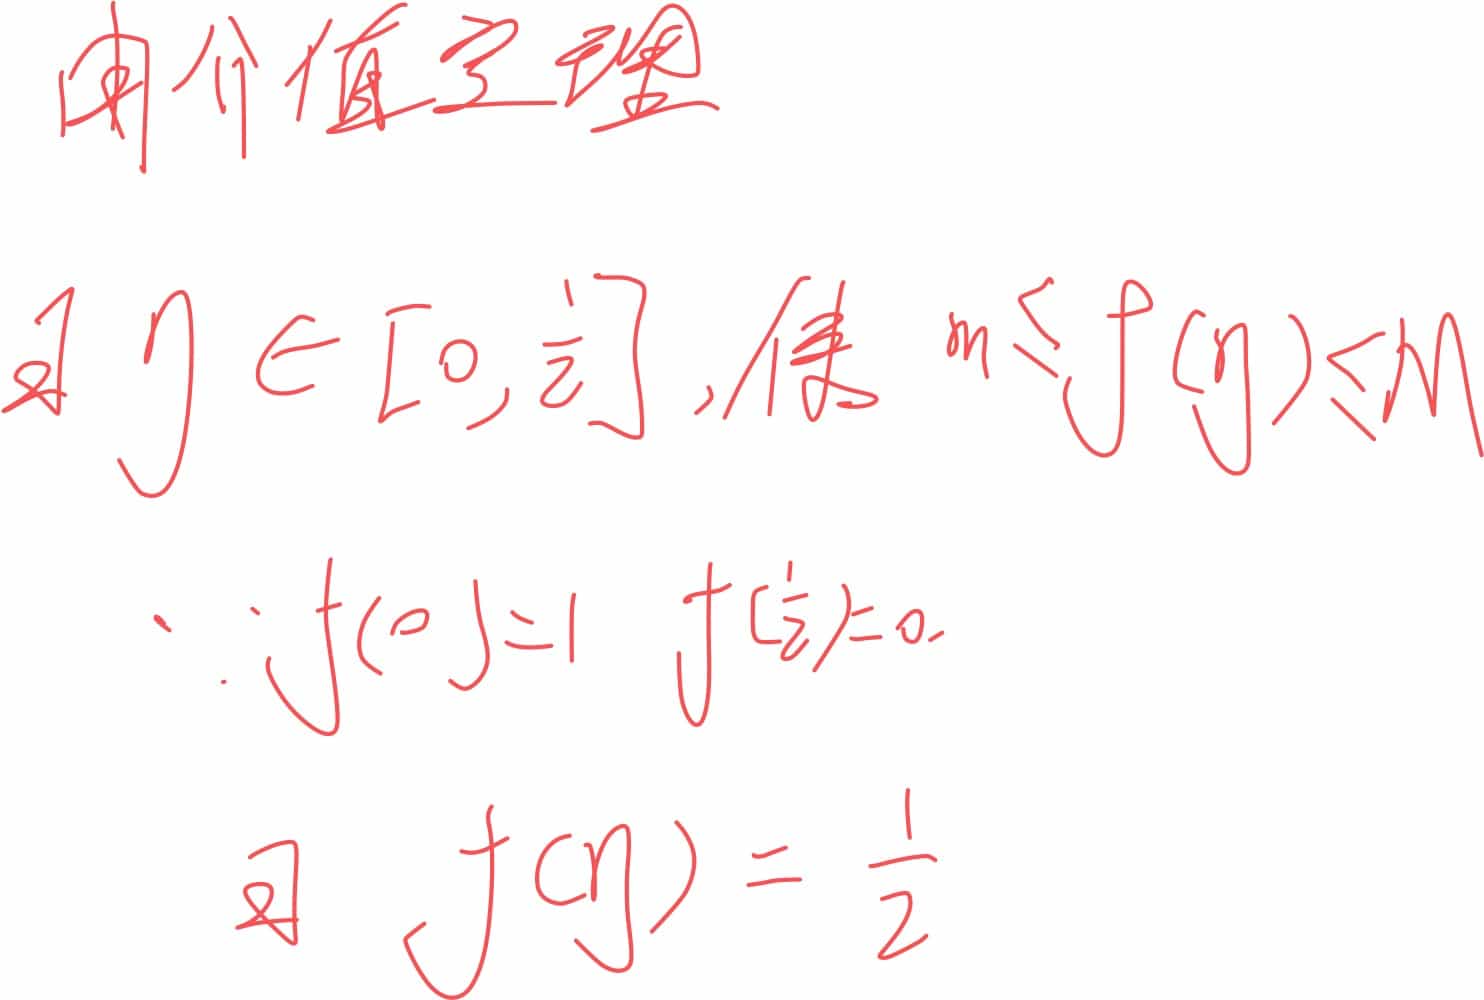 由介值定理
∃ η ∈ [0, 1/2], 使 m ≤ f(η) ≤ M
∵ f(0) = 1 f(1/2) = 0.
∃ f(η) = 1/2